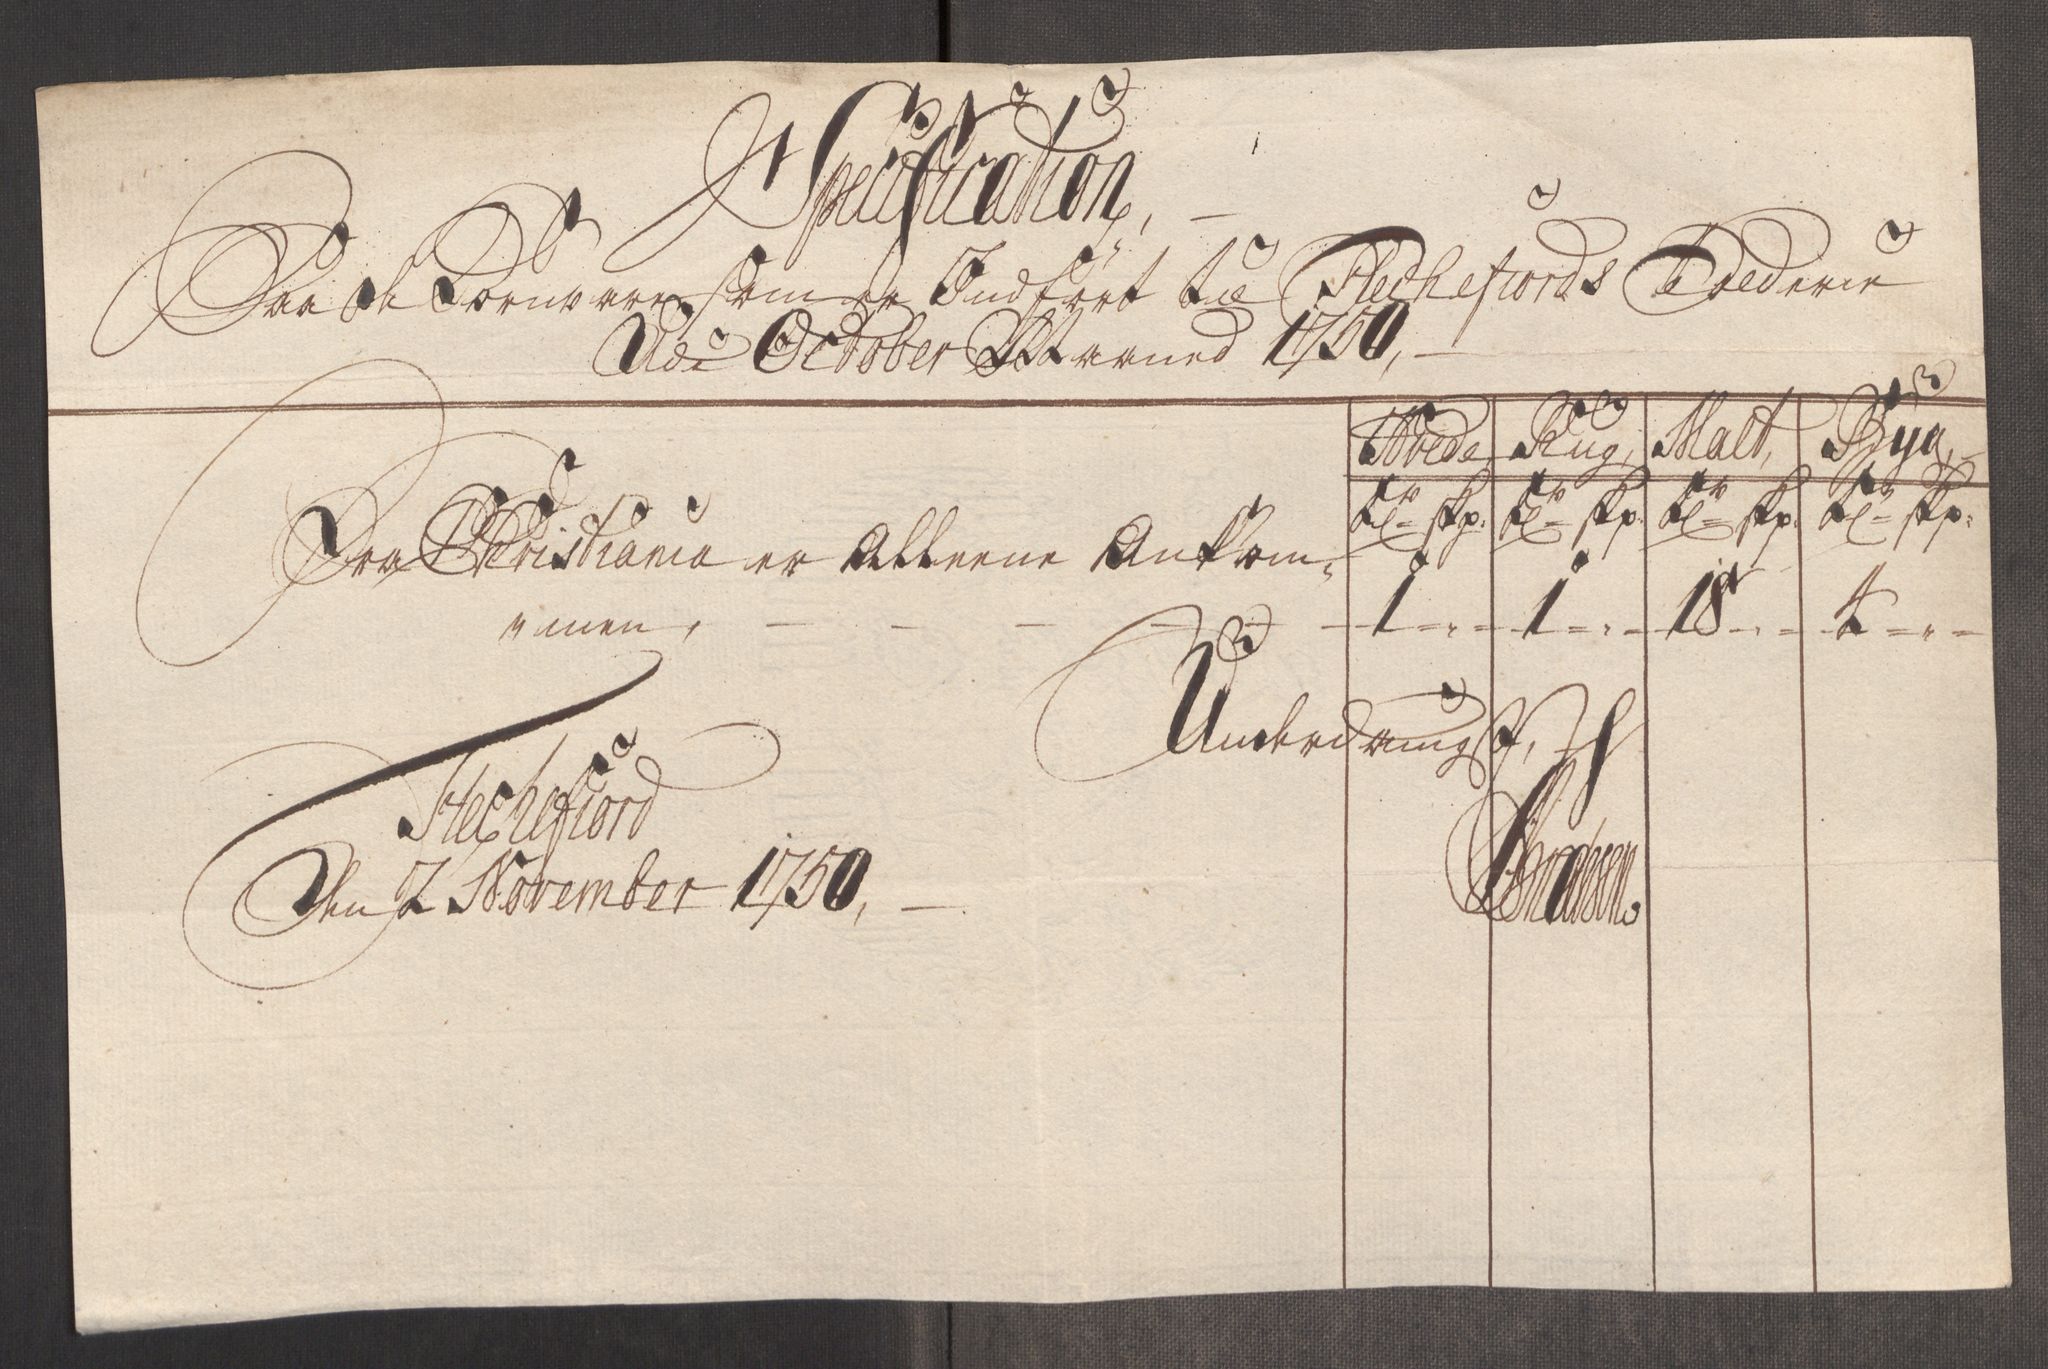 Specification,
Paa de Kornvare som er Indfört til Flechefiords Tolderie
Udi October Maaned 1750,
Hvede Rug, Malt, Byg,
tr skp: tr skp: tr skp: tr skp:
Fra Christiania er Alleene Ankom-
men, 1 1 18 2
Underdanigst,
Flechefiord
Den 2 November 1750,